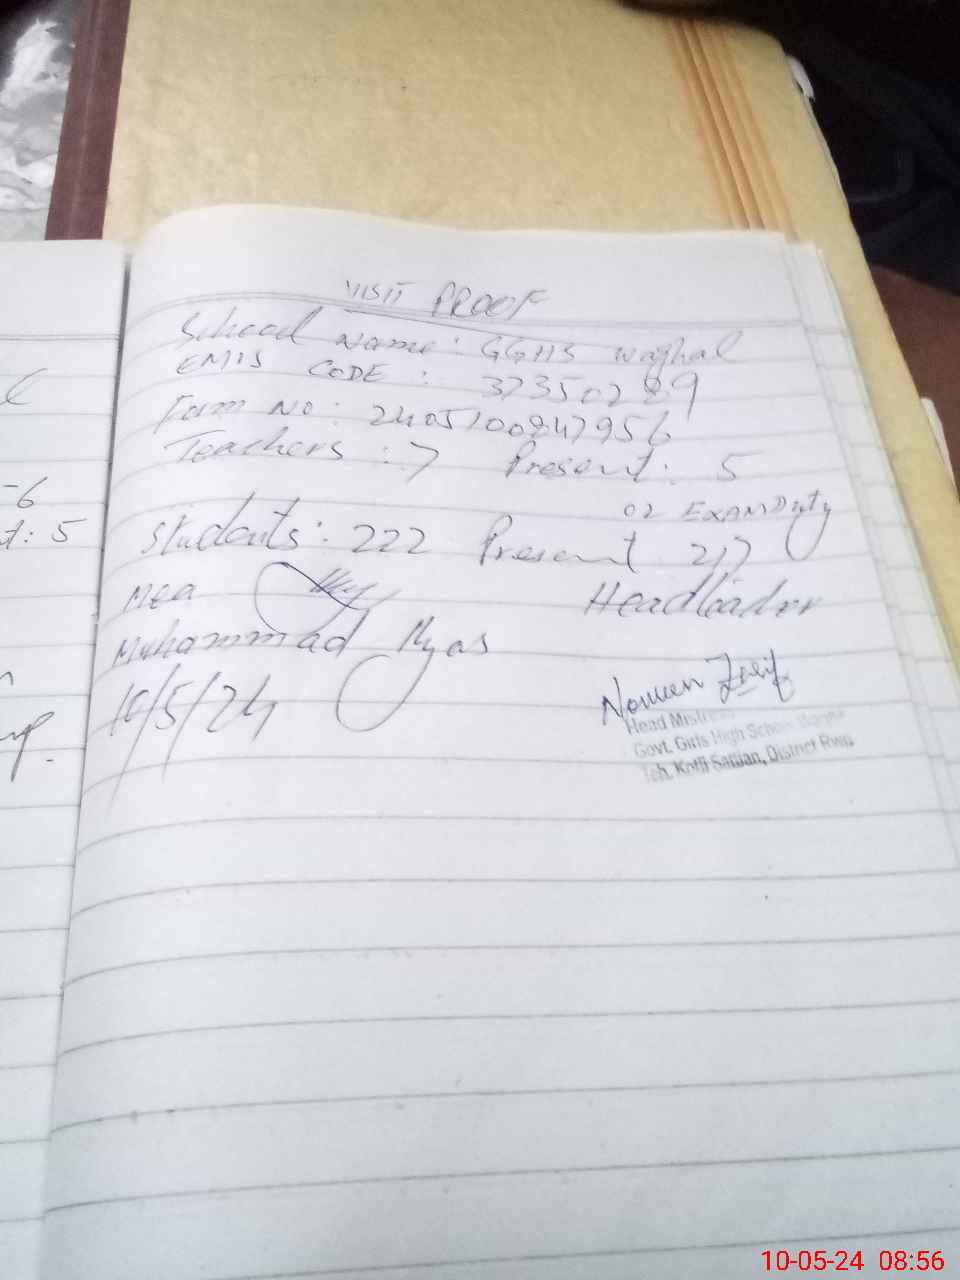 VISIT PROOF
School Name: GGHS Waghal
EMIS CODE: 37350289
Form No: 2405100847956
Teachers: 7 Present: 5
02 EXAM Duty
Students: 222 Present 217
MEA Headleader
Muhammad Ilyas
10/5/24
Head Mistress
Govt. Girls High School
Teh. Kotli Sattian, District Rwp
-6
t: 5
10-05-24 08:56